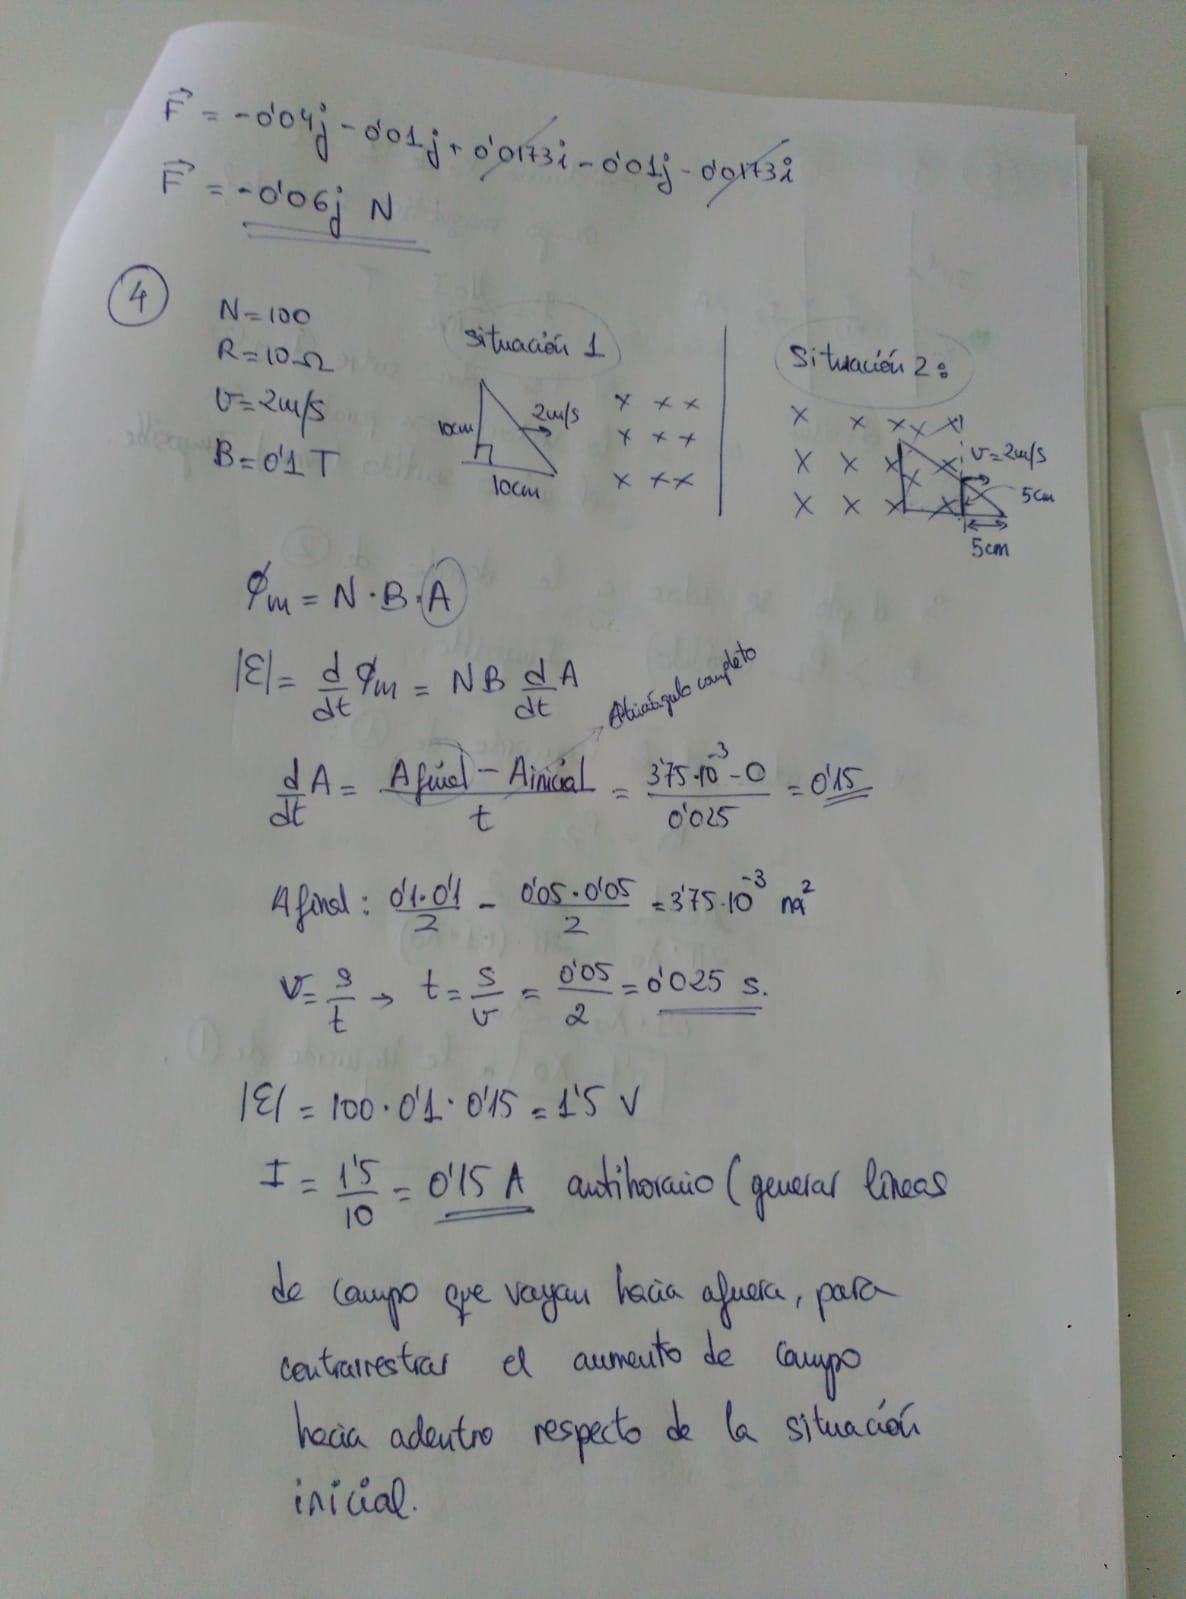 F⃗ = -0'04j - 0'01j + 0'0173i - 0'01j - 0'0173i
F⃗ = -0'06j N
4
N=100
R=10Ω
v=2m/s
B=0'1 T
Situación 1
10cm
2m/s
10cm
x x x
x x x
x x x
Situación 2:
x x x x x
x x x x
x
x x x x
v=2m/s
5cm
5cm
φm = N·B·A
|ε| = d/dt φm = NB d/dt A
A triángulo completo
d/dt A = (A final - A inicial)/t = (3'75·10⁻³ - 0)/0'025 = 0'15
A final: (0'1·0'1)/2 - (0'05·0'05)/2 = 3'75·10⁻³ m²
v = s/t → t = s/v = 0'05/2 = 0'025 s.
|ε| = 100·0'1·0'15 = 1'5 V
I = 1'5/10 = 0'15 A antihorario (generar líneas
de campo que vayan hacia afuera, para
contrarrestrar el aumento de campo
hacia adentro respecto de la situación
inicial.